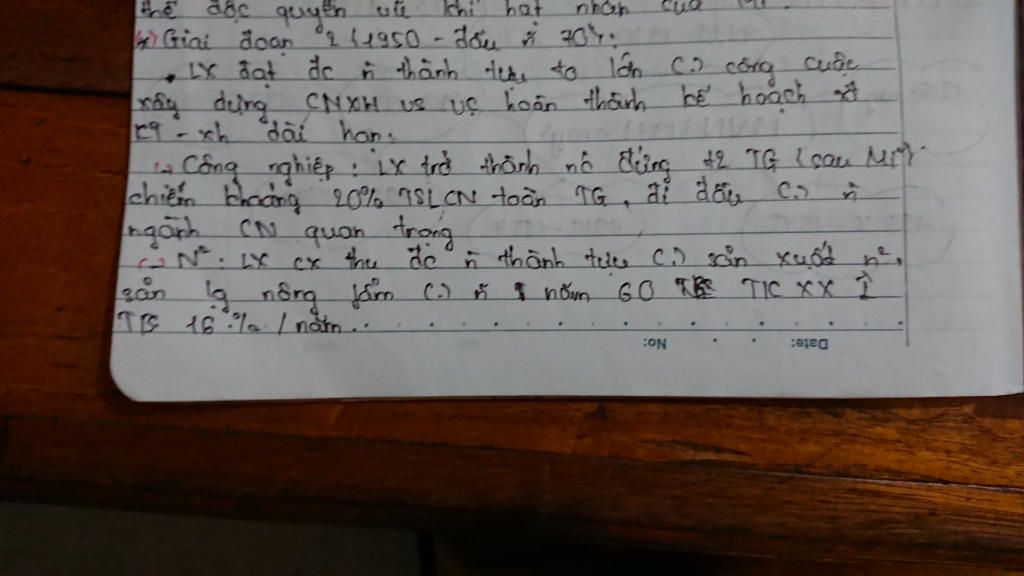 thế độc quyền vũ khí hạt nhân của
*) Giai đoạn 2 (1950 - đầu n̄ 70):
. LX đạt đc n̄ thành tựu to lớn (.) công cuộc
xây dựng CNXH vs vc hoàn thành kế hoạch
KT - xh dài hạn.
Công nghiệp: LX trở thành nc đứng t2 TG (sau Mĩ).
chiếm khoảng 20% TSLCN toàn TG, đi đầu (.) n̄
ngành CN quan trọng
N²: LX cx thu đc n̄ thành tựu (.) sản xuất n²,
sản lg nông fẩm (.) n̄ năm 60 TK XX
TB 16%/năm.
Date: No: